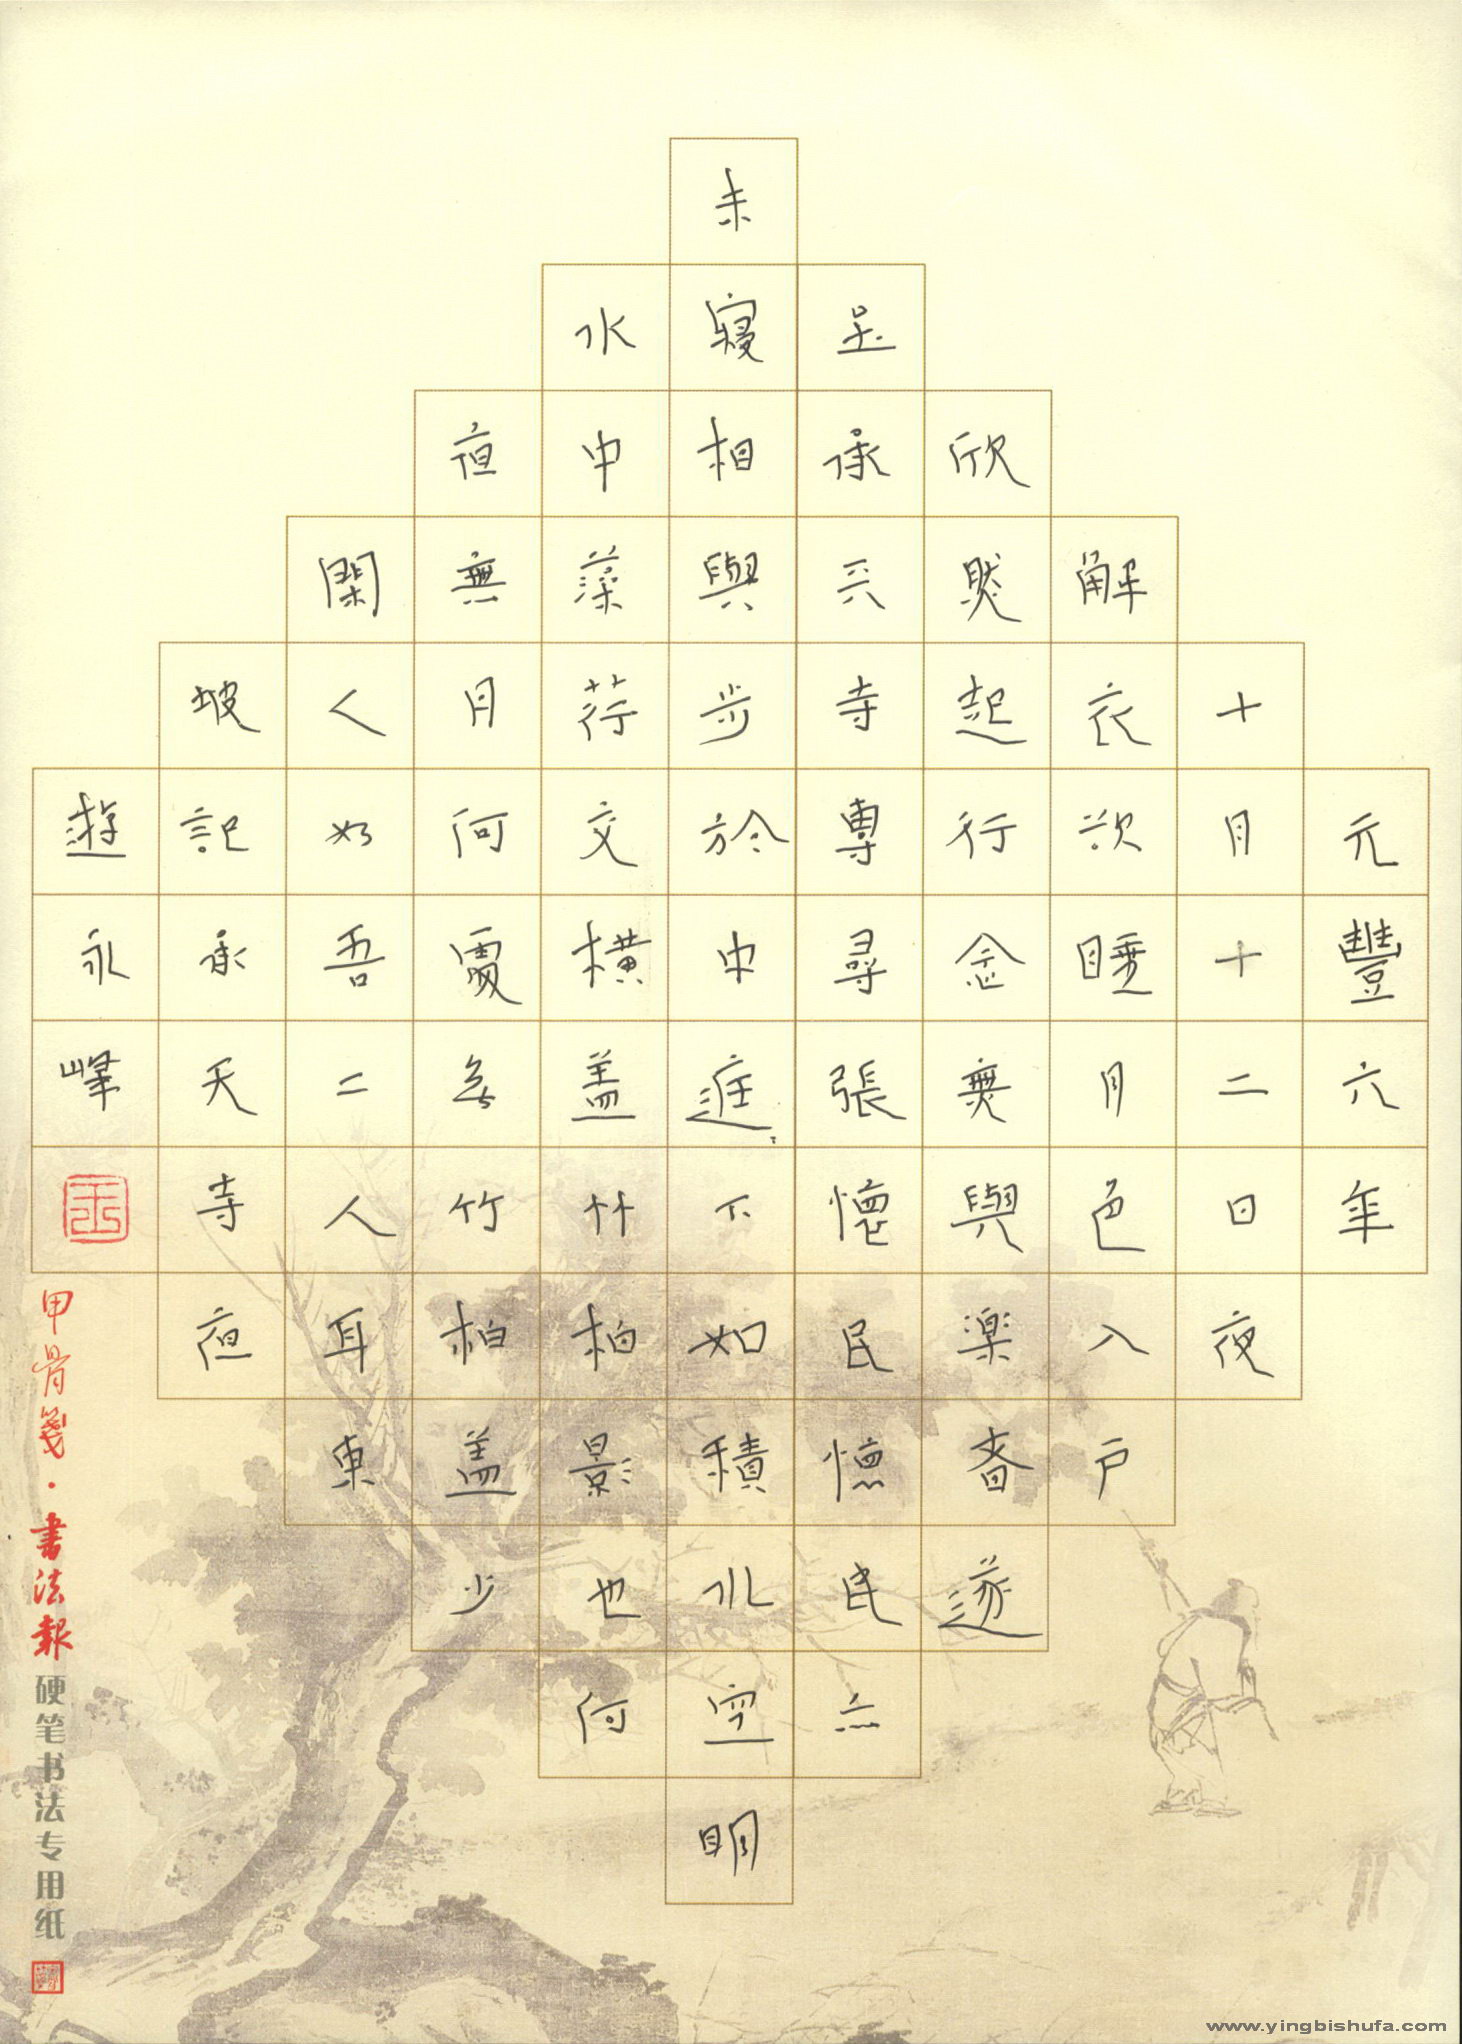 元豐六年
十月十二日夜
解衣欲睡月色入户
欣然起行念無與楽者遂
至承天寺專尋張懷民懷民亦
未寢相與步於中庭下如積水空明
水中藻荇交横盖竹柏影也何
夜無月何處无竹柏盖少
閑人如吾二人耳東
坡記承天寺夜
遊永峰
甲骨箋·書法報硬笔书法专用纸
www.yingbishufa.com